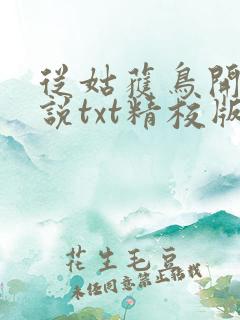 從姑獲鳥開
說txt精校版
花生毛豆
未經同意禁止搭訕